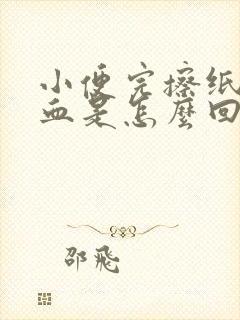 小便完擦纸
血是怎麼回
邵飛